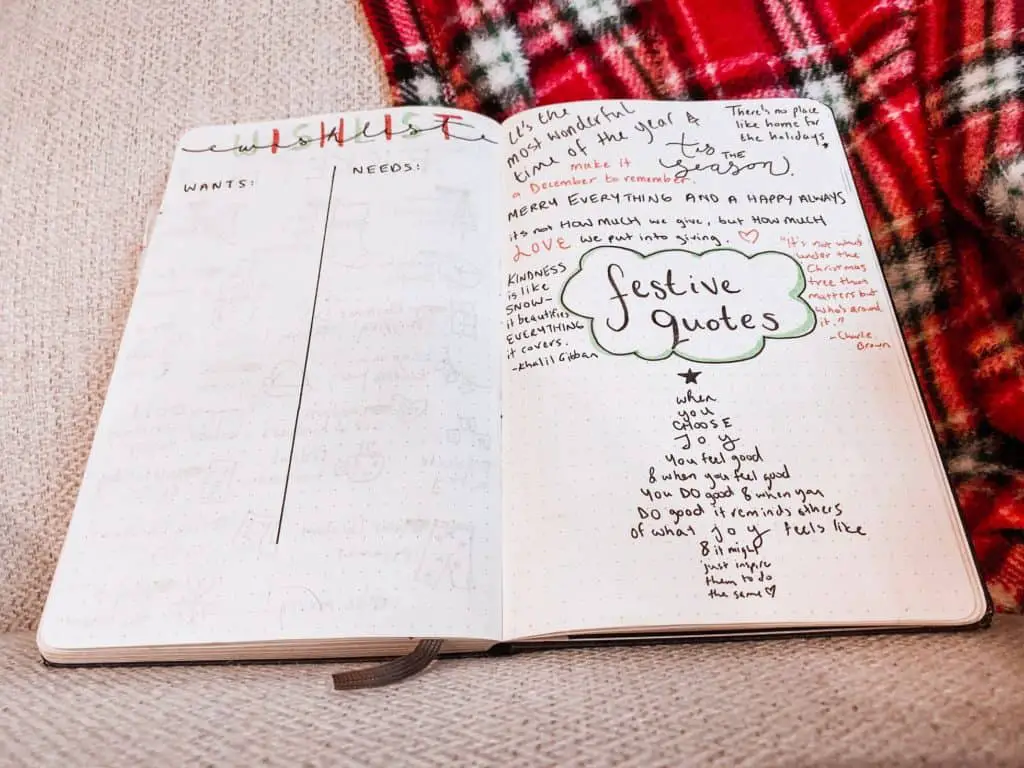 WISHLIST
wishlist
WANTS:
NEEDS:
It's the
most wonderful
time of the year
There's no place
like home for
the holidays
tis THE
season.
make it
a December to remember.
MERRY EVERYTHING AND A HAPPY ALWAYS
it's not HOW MUCH we give, but HOW MUCH
LOVE we put into giving. ♡
KINDNESS
is like
SNOW-
it beautifies
EVERYTHING
it covers.
-Khalil Gibban
festive
quotes
"It's not what's
under the
Christmas
tree that
matters but
who's around
it."
-Charlie
Brown
★
when
you
CHOOSE
JOY
you feel good
& when you feel good
you DO good & when you
DO good it reminds others
of what joy feels like
& it might
just inspire
them to do
the same ♡